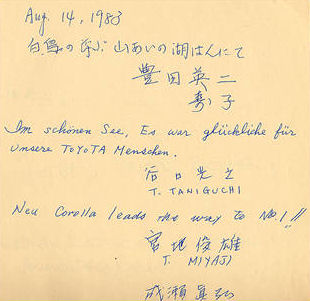 Aug. 14, 1983
白鳥の浮ぶ山あいの湖はんにて
豊田英二
寿子
Im schönen See, Es war glückliche für
unsere ToYoTA Menschen.
谷口光之
T. TANIGUCHI
New Corolla leads the way to No.1!!
宮地俊雄
T. MIYAJI
成瀬眞弘